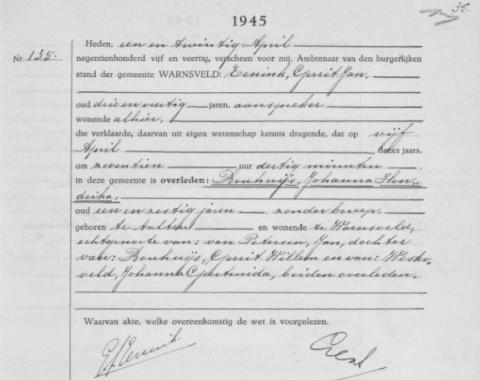 1945
35.
Nr 135.
Heden, een en twintig April
negentienhonderd vijf en veertig, verscheen voor mij, Ambtenaar van den burgerlijken
stand der gemeente WARNSVELD: Eenink, Gerrit Jan.
oud drie en veertig jaren, aanspreker
wonende alhier.
die verklaarde, daarvan uit eigen wetenschap kennis dragende, dat op vijf
April dezes jaars,
om zeventien uur dertig minuten
in deze gemeente is overleden: Bonhuijs, Johanna Hen-
drika,
oud een en zestig jaren zonder beroep,
geboren te Aalten en wonende te Warnsveld,
echtgenoote van: van Petersen, Jan, dochter
van: Bonhuijs, Gerrit Willem en van:
veld, Johanna Geertruida, beiden overleden.
Waarvan akte, welke overeenkomstig de wet is voorgelezen.